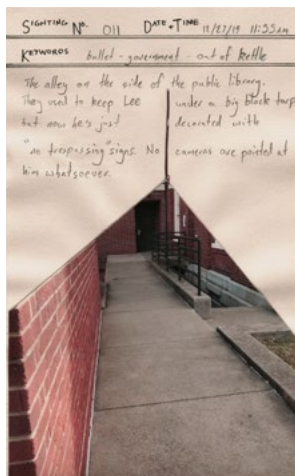 SIGHTING No. 011 DATE+TIME 11/27/19 11:55am
KEYWORDS bullet - government - out of kettle
The alley on the side of the public library.
They used to keep Lee under a big black tarp
but now he's just decorated with
"no trespassing" signs. No cameras are pointed at
him whatsoever.